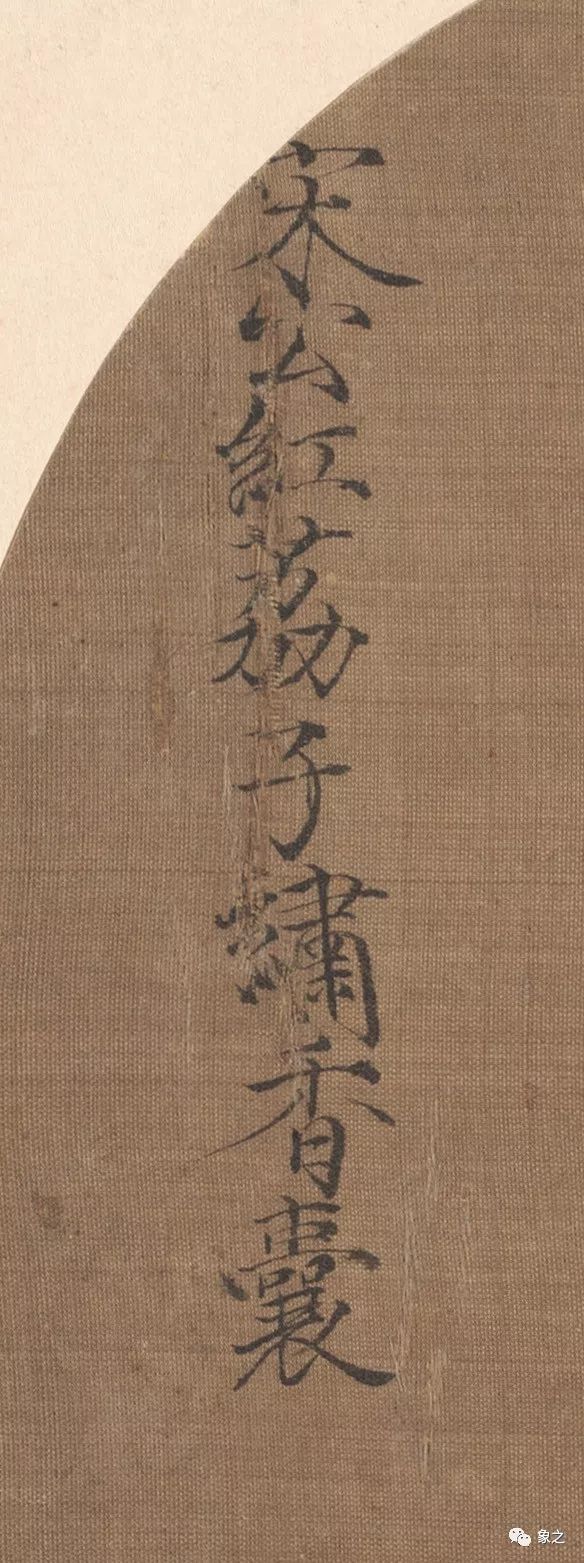 宋公紅荔子繡香囊
象之